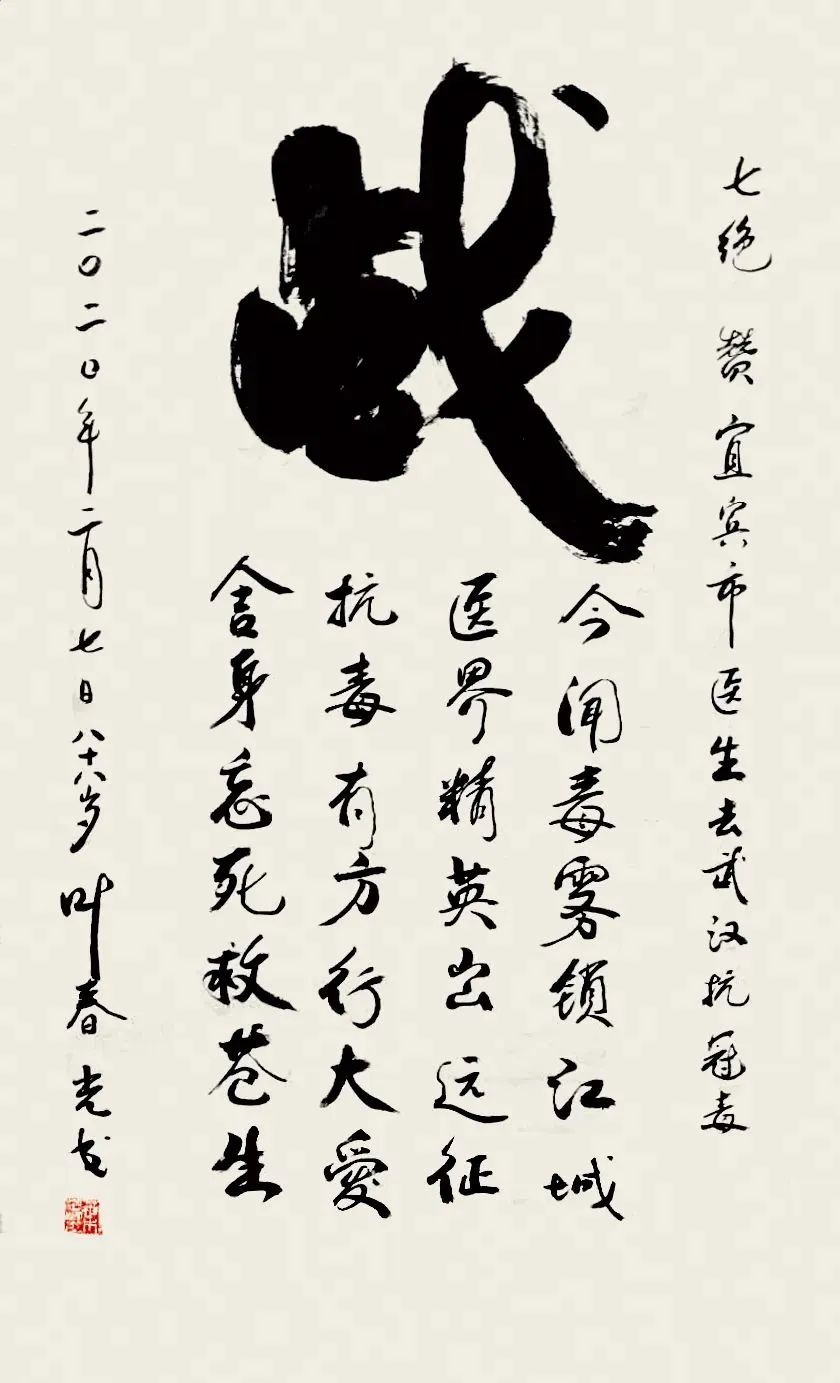 战
七绝 赞宜宾市医生去武汉抗冠毒
今闻毒雾锁江城
医界精英出远征
抗毒有方行大爱
舍身忘死救苍生
二〇二〇年二月七日八十八岁叶春光书